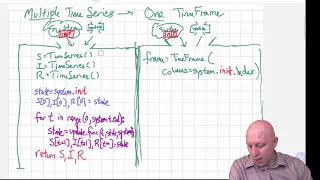 Multiple Time Series → One TimeFrame
system, update
init
system, update
init
S=TimeSeries()
I=TimeSeries()
R=TimeSeries()
state=system.init
S[0], I[0], R[0]=state
for t in range(0, system.t_end):
state=update_func(t, state, system)
S[t+1], I[t+1], R[t+1]=state
return S, I, R
frame=TimeFrame(
columns=system.init.index)